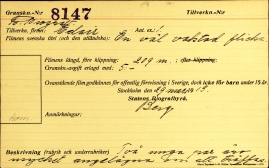 Granskn.-N:r 8147 Tillverkn.-N:r
Tillverkn. firma: Eclair Ant. a.:
Filmens svenska titel (och den utländska): En väl vaktad flicka
Filmens längd, före klippning: 219 m. efter klippning:
Gransknings-avgift erlagd med: 5-
Ovanstående film godkännes för offentlig förevisning i Sverige, dock icke för barn under 15 år.
Stockholm den 29 maj 1913.
Statens Biografbyrå.
Berg
Anmärkningar:
Beskrivning (rubrik och underrubriker) Två unga par äro
mycket angelägna om att träffas